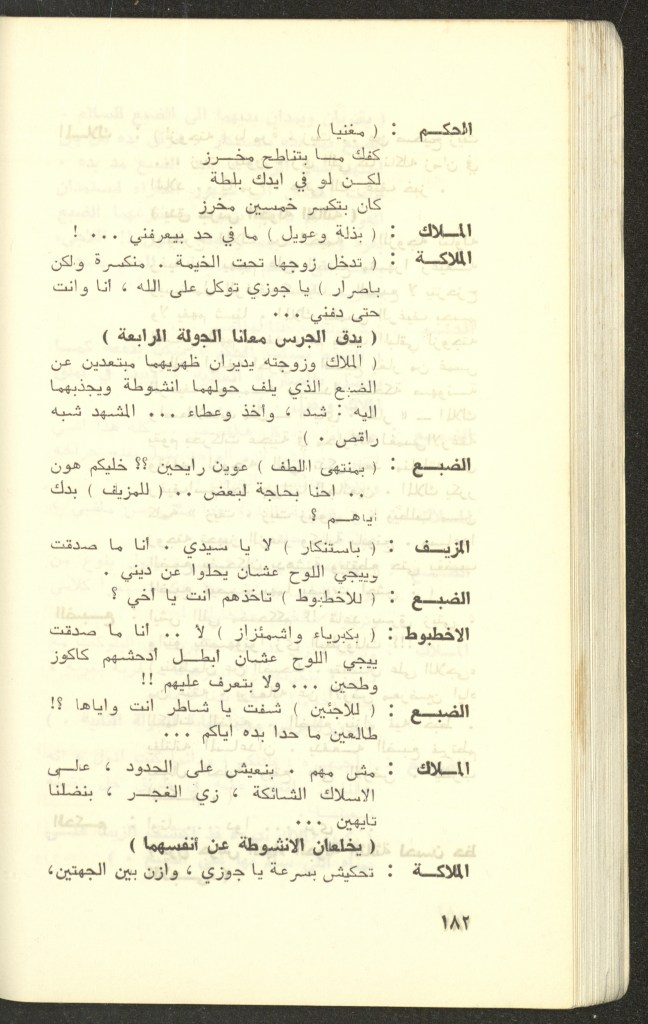 الحكـم : ( مغنيا )
كفك مـا بتناطح مخـرز
لكـن لو في ايدك بلطة
كان بتكسر خمسين مخرز
المـلاك : ( بذلة وعويل ) ما في حد بيعرفني ... !
الملاكـة : ( تدخل زوجها تحت الخيمة . منكسرة ولكن
باصرار ) يا جوزي توكل على الله ، انا وانت
حتى دفني ...
( يدق الجرس معلنا الجولة الرابعة )
( الملاك وزوجته يديران ظهريهما مبتعدين عن
الضبع الذي يلف حولهما انشوطة ويجذبهما
اليه : شد ، واخذ وعطاء ... المشهد شبه
راقص . )
الضبـع : ( بمنتهى اللطف ) عوين رايحين ؟؟ خليكم هون
.. احنا بحاجة لبعض .. ( للمزيف ) بدك
اياهـم ؟
المزيـف : ( باستنكار ) لا يا سيدي . انا ما صدقت
وييجي اللوح عشان يحلوا عن ديني .
الضبـع : ( للاخطبوط ) تاخذهم انت يا اخي ؟
الاخطبوط : ( بكبرياء واشمئزاز ) لا .. انا ما صدقت
ييجي اللوح عشان ابطـل ادحشهم كاكوز
وطحين ... ولا بتعرف عليهم !!
الضبـع : ( للاجئين ) شفت يا شاطر انت واياها ؟!
طالعين ما حدا بده اياكم ...
المـلاك : مش مهم . بنعيش على الحدود ، عالـي
الاسلاك الشائكة ، زي الغجـر ، بنضلنا
تايهين ...
( يخلعان الانشوطة عن أنفسهما )
الملاكـة : تحكيش بسرعة يا جوزي ، وازن بين الجهتين،
١٨٢